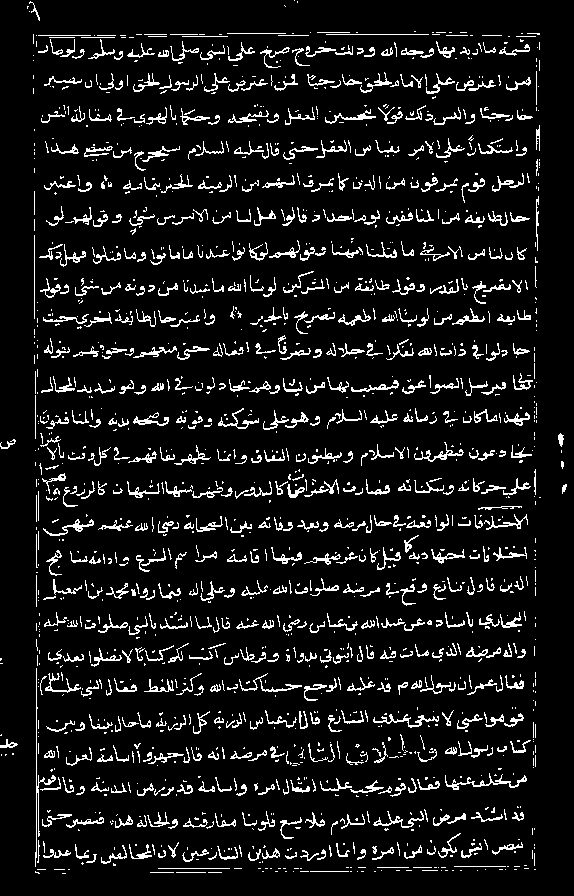 ٩
قسمة ما اريد بها وجه الله وذلك خروج صريح على النبي صلى الله عليه وسلم ولو صار
من اعترض على الامام الحق خارجيا فمن اعترض على الرسول الحق اولى ان يصير
خارجيا وليس ذلك قولا بتحسين العقل وتقبيحه وحكما بالهوى في مقابلة النص
واستكبارا على الامر بقياس العقل حتى قال عليه السلام سيخرج من ضئضئ هذا
الرجل قوم يمرقون من الدين كما يمرق السهم من الرمية الخبر بتمامه واعتبر
حال طايفة من المنافقين يوم احد اذ قالوا هل لنا من الامر من شيء وقولهم لو
كان لنا من الامر شيء ما قتلنا ههنا وقولهم لو كانوا عندنا ما ماتوا وما قتلوا فهل ذلك
الا تصريح بالقدر وقول طائفة من المشركين لو شاء الله ما عبدنا من دونه من شيء وقول
طايفة انطعم من لو يشاء الله اطعمه تصريح بالجبر واعتبر حال طائفة اخرى حيث
جادلوا في ذات الله تفكرا في جلاله وتصرفا في افعاله حتى منعهم وخوفهم بقوله
تعالى ويرسل الصواعق فيصيب بها من يشاء وهم يجادلون في الله وهو شديد المحال
فهذا ما كان في زمانه عليه السلام وهو على شوكته وقوته وصحة بدنه والمنافقون
يخادعون فيظهرون الاسلام ويبطنون النفاق وانما يظهر نفاقهم في كل وقت بالاعتراض
على حركاته وسكناته فصارت الاعتراضات كالبذور وظهر منها الشبهات كالزروع واما
الاختلافات الواقعة في حال مرضه وبعد وفاته بين الصحابة رضي الله عنهم فهي
اختلافات اجتهادية كما قيل كان غرضهم فيها اقامة مراسم الشرع وادامة مناهج
الدين فاول تنازع وقع في مرضه صلوات الله عليه وعلى اله فيما رواه محمد بن اسمعيل
البخاري باسناده عن عبد الله بن عباس رضي الله عنه قال لما اشتد بالنبي صلوات الله عليه
واله مرضه الذي مات فيه قال ايتوني بدواة وقرطاس اكتب لكم كتابا لا تضلوا بعدي
فقال عمر ان رسول الله ص قد غلبه الوجع حسبنا كتاب الله وكثر اللغط فقال النبي عليه السلام
قوموا عني لا ينبغي عندي التنازع قال ابن عباس الرزية كل الرزية ما حال بيننا وبين
كتاب رسول الله والخلاف الثاني في مرضه انه قال جهزوا اسامة لعن الله
من تخلف عنها فقال قوم يجب علينا امتثال امره واسامة قد برز من المدينة وقال قوم
قد اشتد مرض النبي عليه السلام فلا يسع قلوبنا مفارقته والحالة هذه فنصبر حتى
نبصر اي شيء يكون من امره وانما اوردت هذين التنازعين لان المخالفين ربما عدوا